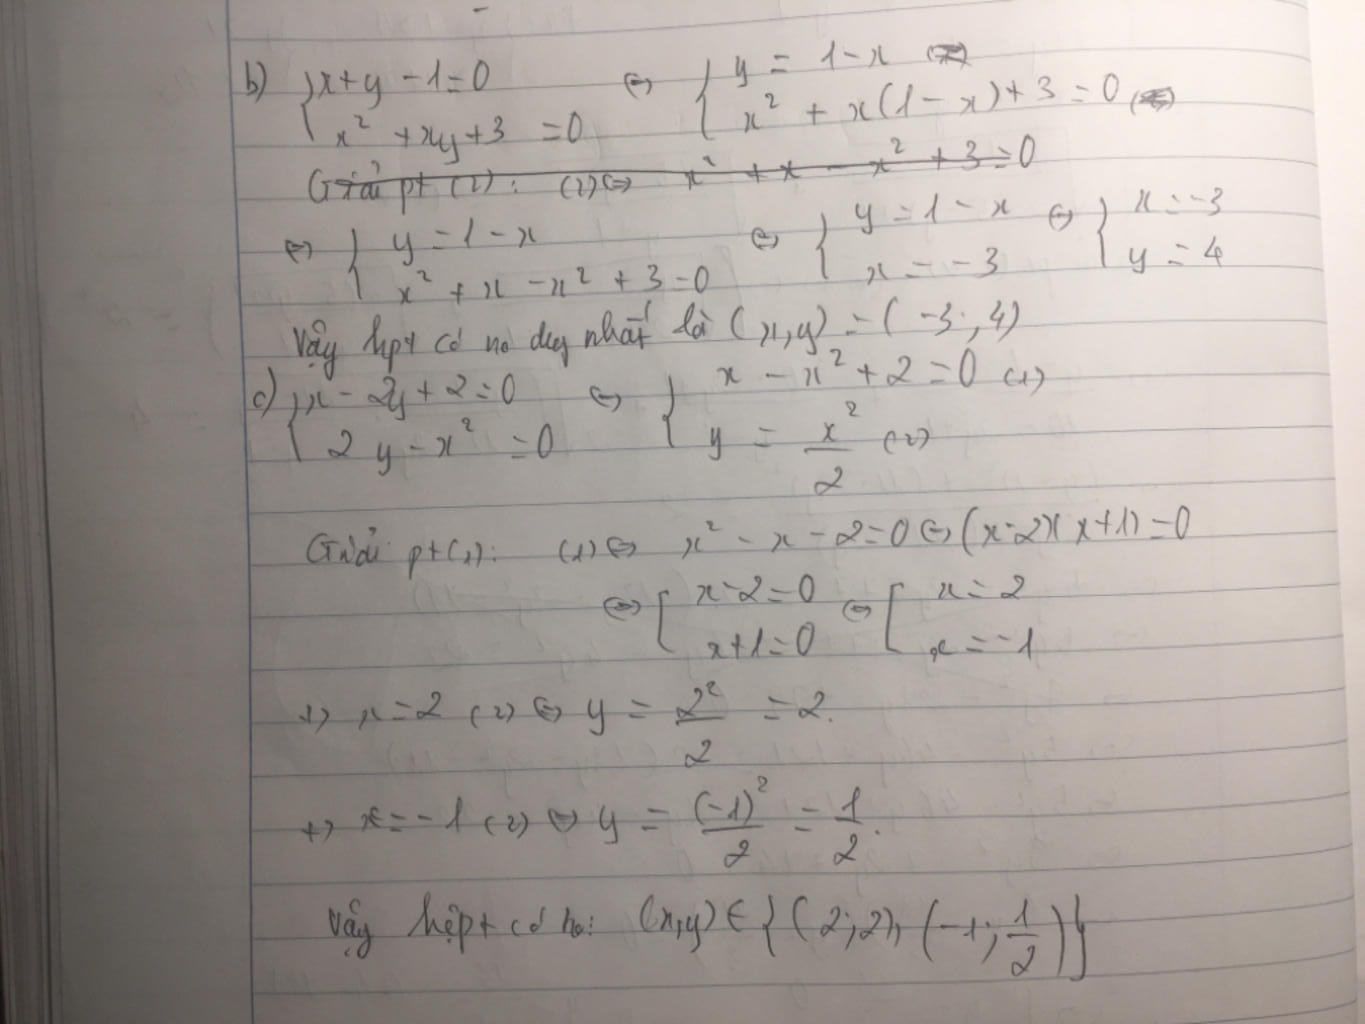 b) { x+y-1=0 ⇔ { y = 1-x
x² + xy + 3 = 0 x² + x(1-x) + 3 = 0
Giải pt (2): (2) ⇔ x² + x - x² + 3 = 0
⇔ { y = 1-x ⇔ { y = 1-x ⇔ { x = -3
x² + x - x² + 3 = 0 x = -3 y = 4
Vậy hpt có no duy nhất là (x,y) = (-3; 4)
c) { x - 2y + 2 = 0 ⇔ { x - x² + 2 = 0 (1)
2y - x² = 0 y = x²/2 (2)
Giải pt(1): (1) ⇔ x² - x - 2 = 0 ⇔ (x-2)(x+1) = 0
⇔ [ x-2=0 ⇔ [ x = 2
x+1=0 x = -1
+) x = 2 (2) ⇔ y = 2²/2 = 2.
+) x = -1 (2) ⇔ y = (-1)²/2 = 1/2.
Vậy hệpt có no: (x,y) ∈ {(2;2), (-1; 1/2)}